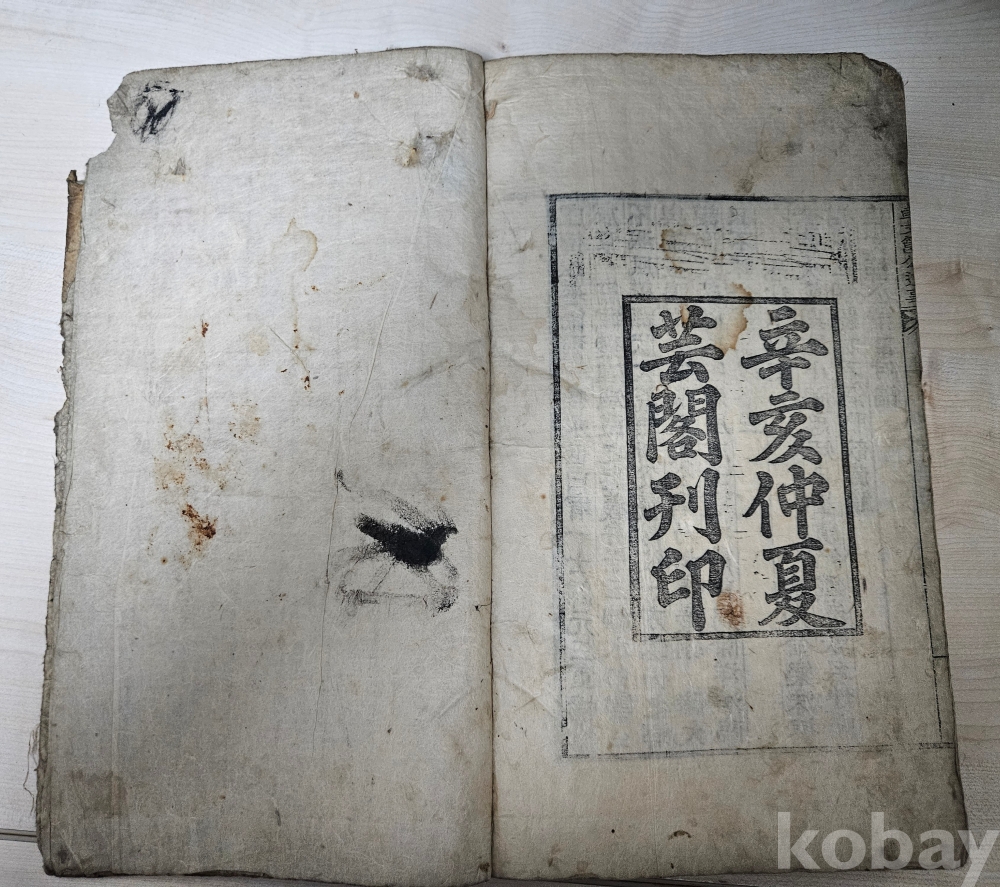 辛亥仲夏
芸閣刊印
kobay